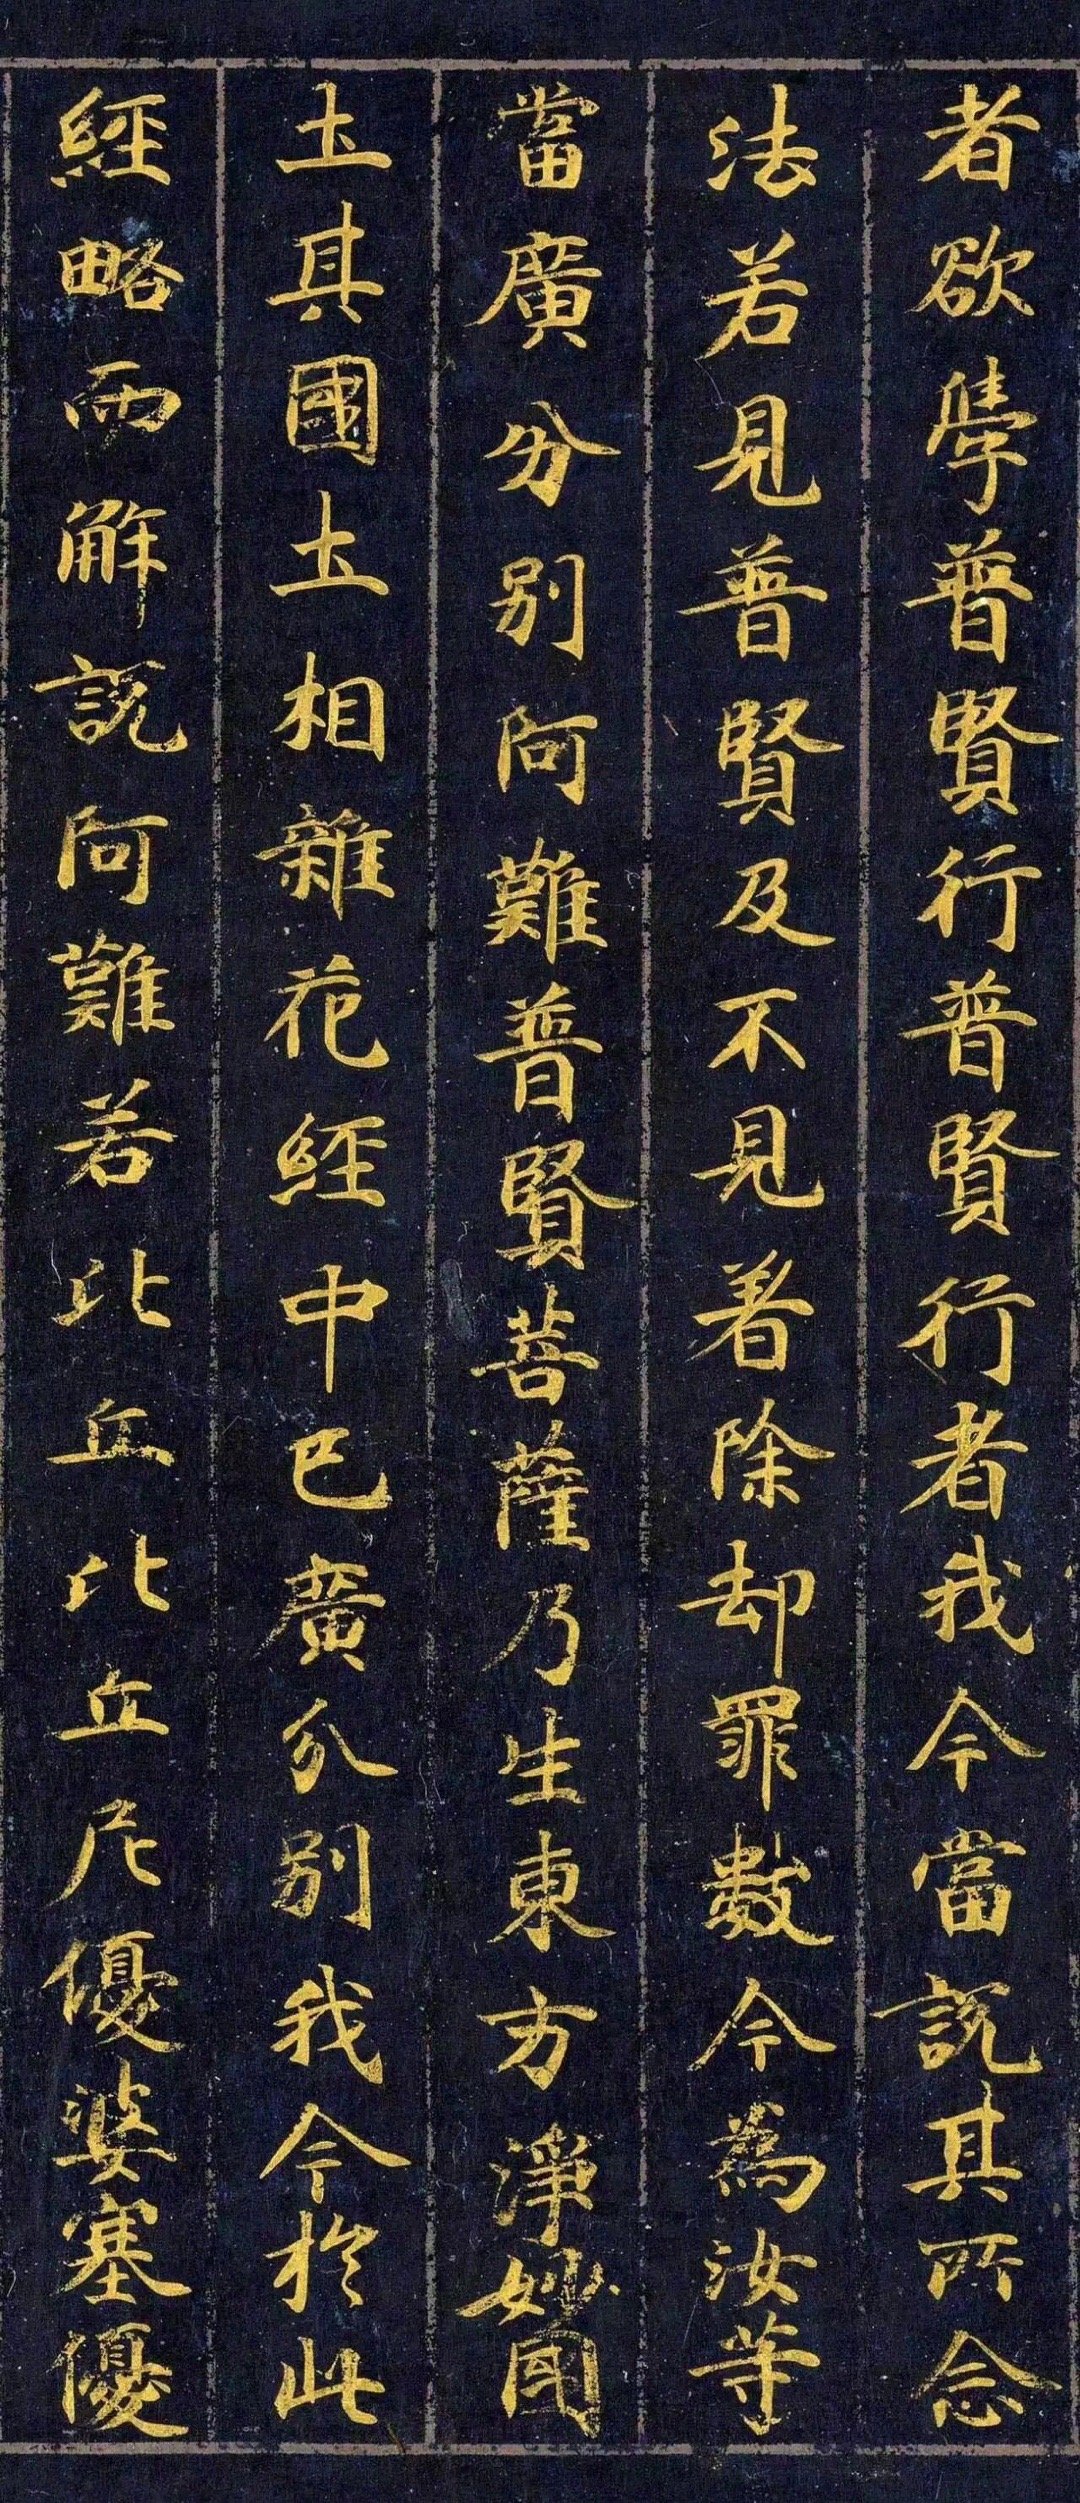 者欲學普賢行普賢行者我今當說其所念
法若見普賢及不見者除却罪數今為汝等
當廣分別阿難普賢菩薩乃生東方淨妙國
土其國土相雜花經中已廣分別我今於此
經略而解說阿難若比丘比丘尼優婆塞優